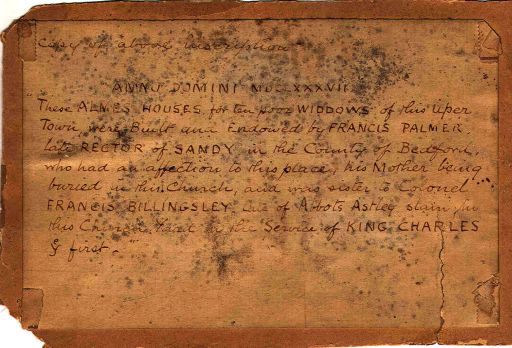 Copy of above inscription
ANNO DOMINI MDCCXXXVII
"These ALMES HOUSES for ten poor WIDDOWS of this Uper
Town, were Built and Endowed by FRANCIS PALMER,
late RECTOR of SANDY in the County of Bedford,
who had an affection to this place, his Mother being
buried in this Church, and was sister to Colonel
FRANCIS BILLINGSLEY late of Abots Astley slain, in
this Church Yard in the Service of KING CHARLES
ye first."